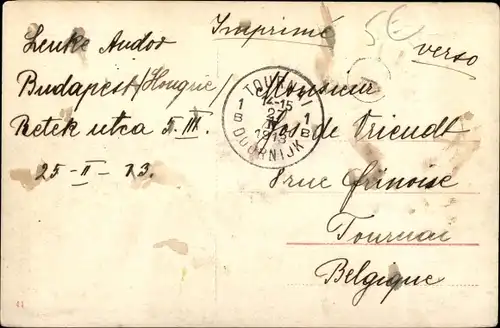 Imprimé
verso
Lenke Andor
Budapest/Hongrie/
Retek utca 5. III.
25-II-13.
TOURNAI
1 14-15 1
B 1913 B
DOORNIJK
Monsieur
de Vriendt
8 rue
Tournai
Belgique